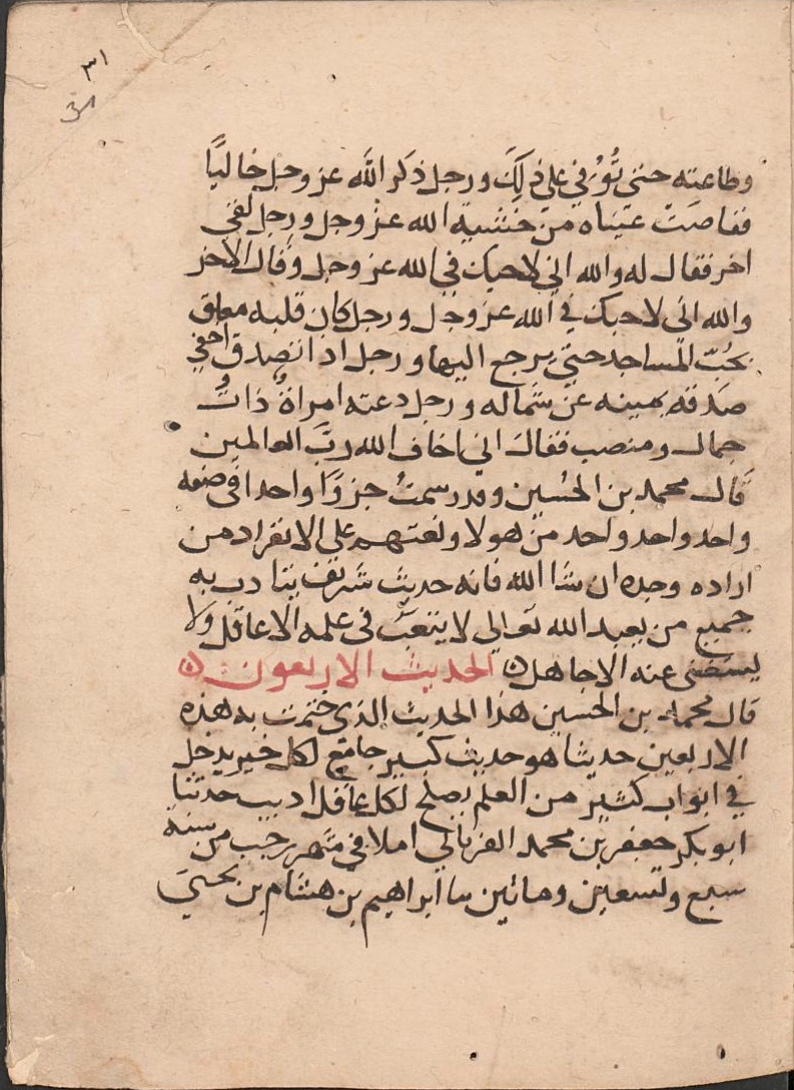 ٣١
31
وطاعته حتى تُوُفي على ذلِكَ ورجل ذكر الله عز وجل خاليًا
ففاضت عيناه من خشية الله عز وجل ورجل لقي
اخر فقال له والله اني لاحبك في الله عز وجل وقال الاخر
والله انى لاحبك في الله عز وجل ورجل كان قلبه معلق
بحُبّ المساجد حتى يرجع اليها ورجل اذا تصدق اخفي
صدقه يمينه عن شماله ورجل دعته امراةٌ ذاتُ
جمال ومنصب فقال اني اخاف الله ربَّ العالمين
قال محمد بن الحُسين وقد رسمتُ جزوًا واحدا في صفه
واحد واحد واحد من هولا ونعتهم على الانفراد من
اراده وجده ان شا الله فانه حديث شريف يتادب به
جميع من يعبد الله تعالى لا يتعب في علمه الا عاقل ولا
يستغنى عنه الا جاهل ٥ الحديث الاربعون ٥
قال محمد بن الحسين هذا الحديث الذي ختمت به هذه
الاربعين حديثا هو حديث كبير جامع لكل خير يدخل
في ابواب كثير من العلم يصلح لكل عاقل اديب حدثنا
ابو بكر جعفر بن محمد الفريابي املا في شهر رجب من سنه
سبع وتسعين ومائتين ىنا ابراهيم بن هشام بن يحيى